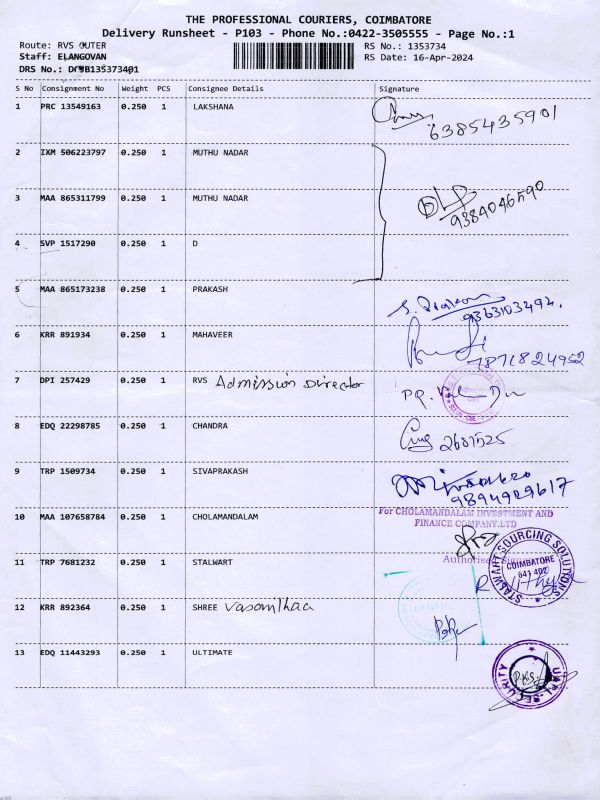 THE PROFESSIONAL COURIERS, COIMBATORE
Delivery Runsheet - P103 - Phone No.:0422-3505555 - Page No.:1
Route: RVS OUTER
RS No.: 1353734
Staff: ELANGOVAN
RS Date: 16-Apr-2024
DRS No.: 135373401
S No Consignment No Weight PCS Consignee Details Signature
1 PRC 13549163 0.250 1 LAKSHANA
6385435901
2 IXM 506223797 0.250 1 MUTHU NADAR
3 MAA 865311799 0.250 1 MUTHU NADAR
9384046590
4 SVP 1517290 0.250 1 D
5 MAA 865173238 0.250 1 PRAKASH
9363103492.
6 KRR 891934 0.250 1 MAHAVEER
7871824952
7 DPI 257429 0.250 1 RVS Admission Director
8 EDQ 22298785 0.250 1 CHANDRA
2681525
9 TRP 1509734 0.250 1 SIVAPRAKASH
9894929617
10 MAA 107658784 0.250 1 CHOLAMANDALAM
For CHOLAMANDALAM INVESTMENT AND
FINANCE COMPANY.LTD
11 TRP 7681232 0.250 1 STALWART
STALWART SOURCING SOLUTIONS
COIMBATORE
641 402
12 KRR 892364 0.250 1 SHREE Vasanthaa
13 EDQ 11443293 0.250 1 ULTIMATE
SECURITY